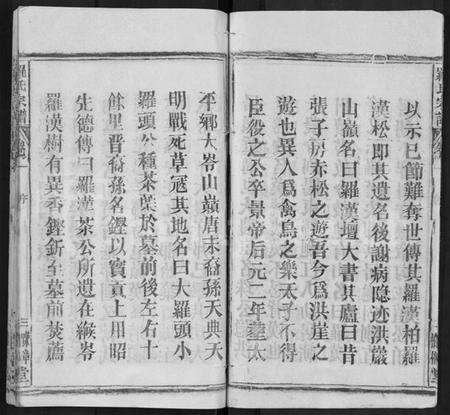 羅氏宗譜
以示已節難奪世傳其羅漢柏羅
漢松即其遺名後謝病隐迹洪巖
山巔名曰羅漢壇大書其廬曰昔
張子房赤松之遊吾今爲洪崖之
遊也異人爲禽鳥之樂太子不得
臣役之公卒景帝后元二年塟太
平鄉大岺山巔唐末裔孫天典天
明戰死草寇其地名曰大羅頭小
羅頭公種茶葉於墓前後左右十
餘里晋裔孫名鏗以實貢上用昭
先德傳曰羅漢茶公所遺在縱岺
羅漢樹有異香鏗釿至墓前焚薦
羅氏宗譜
卷之一
序
三
堂